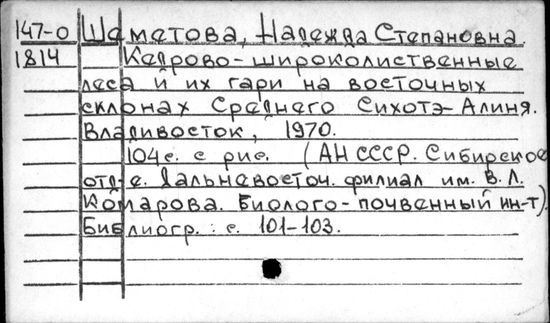 147-0 Шаматова, Надежда Степановна.
1814 Кедрово-широколиственные
леса и их гари на восточных
склонах Среднего Сихотэ-Алиня.
Владивосток, 1970.
104 с. с рис. (АН СССР. Сибирское
отд-е. Дальневосточ. филиал им. В. Л.
Комарова. Биолого-почвенный ин-т).
Библиогр.: с. 101-103.